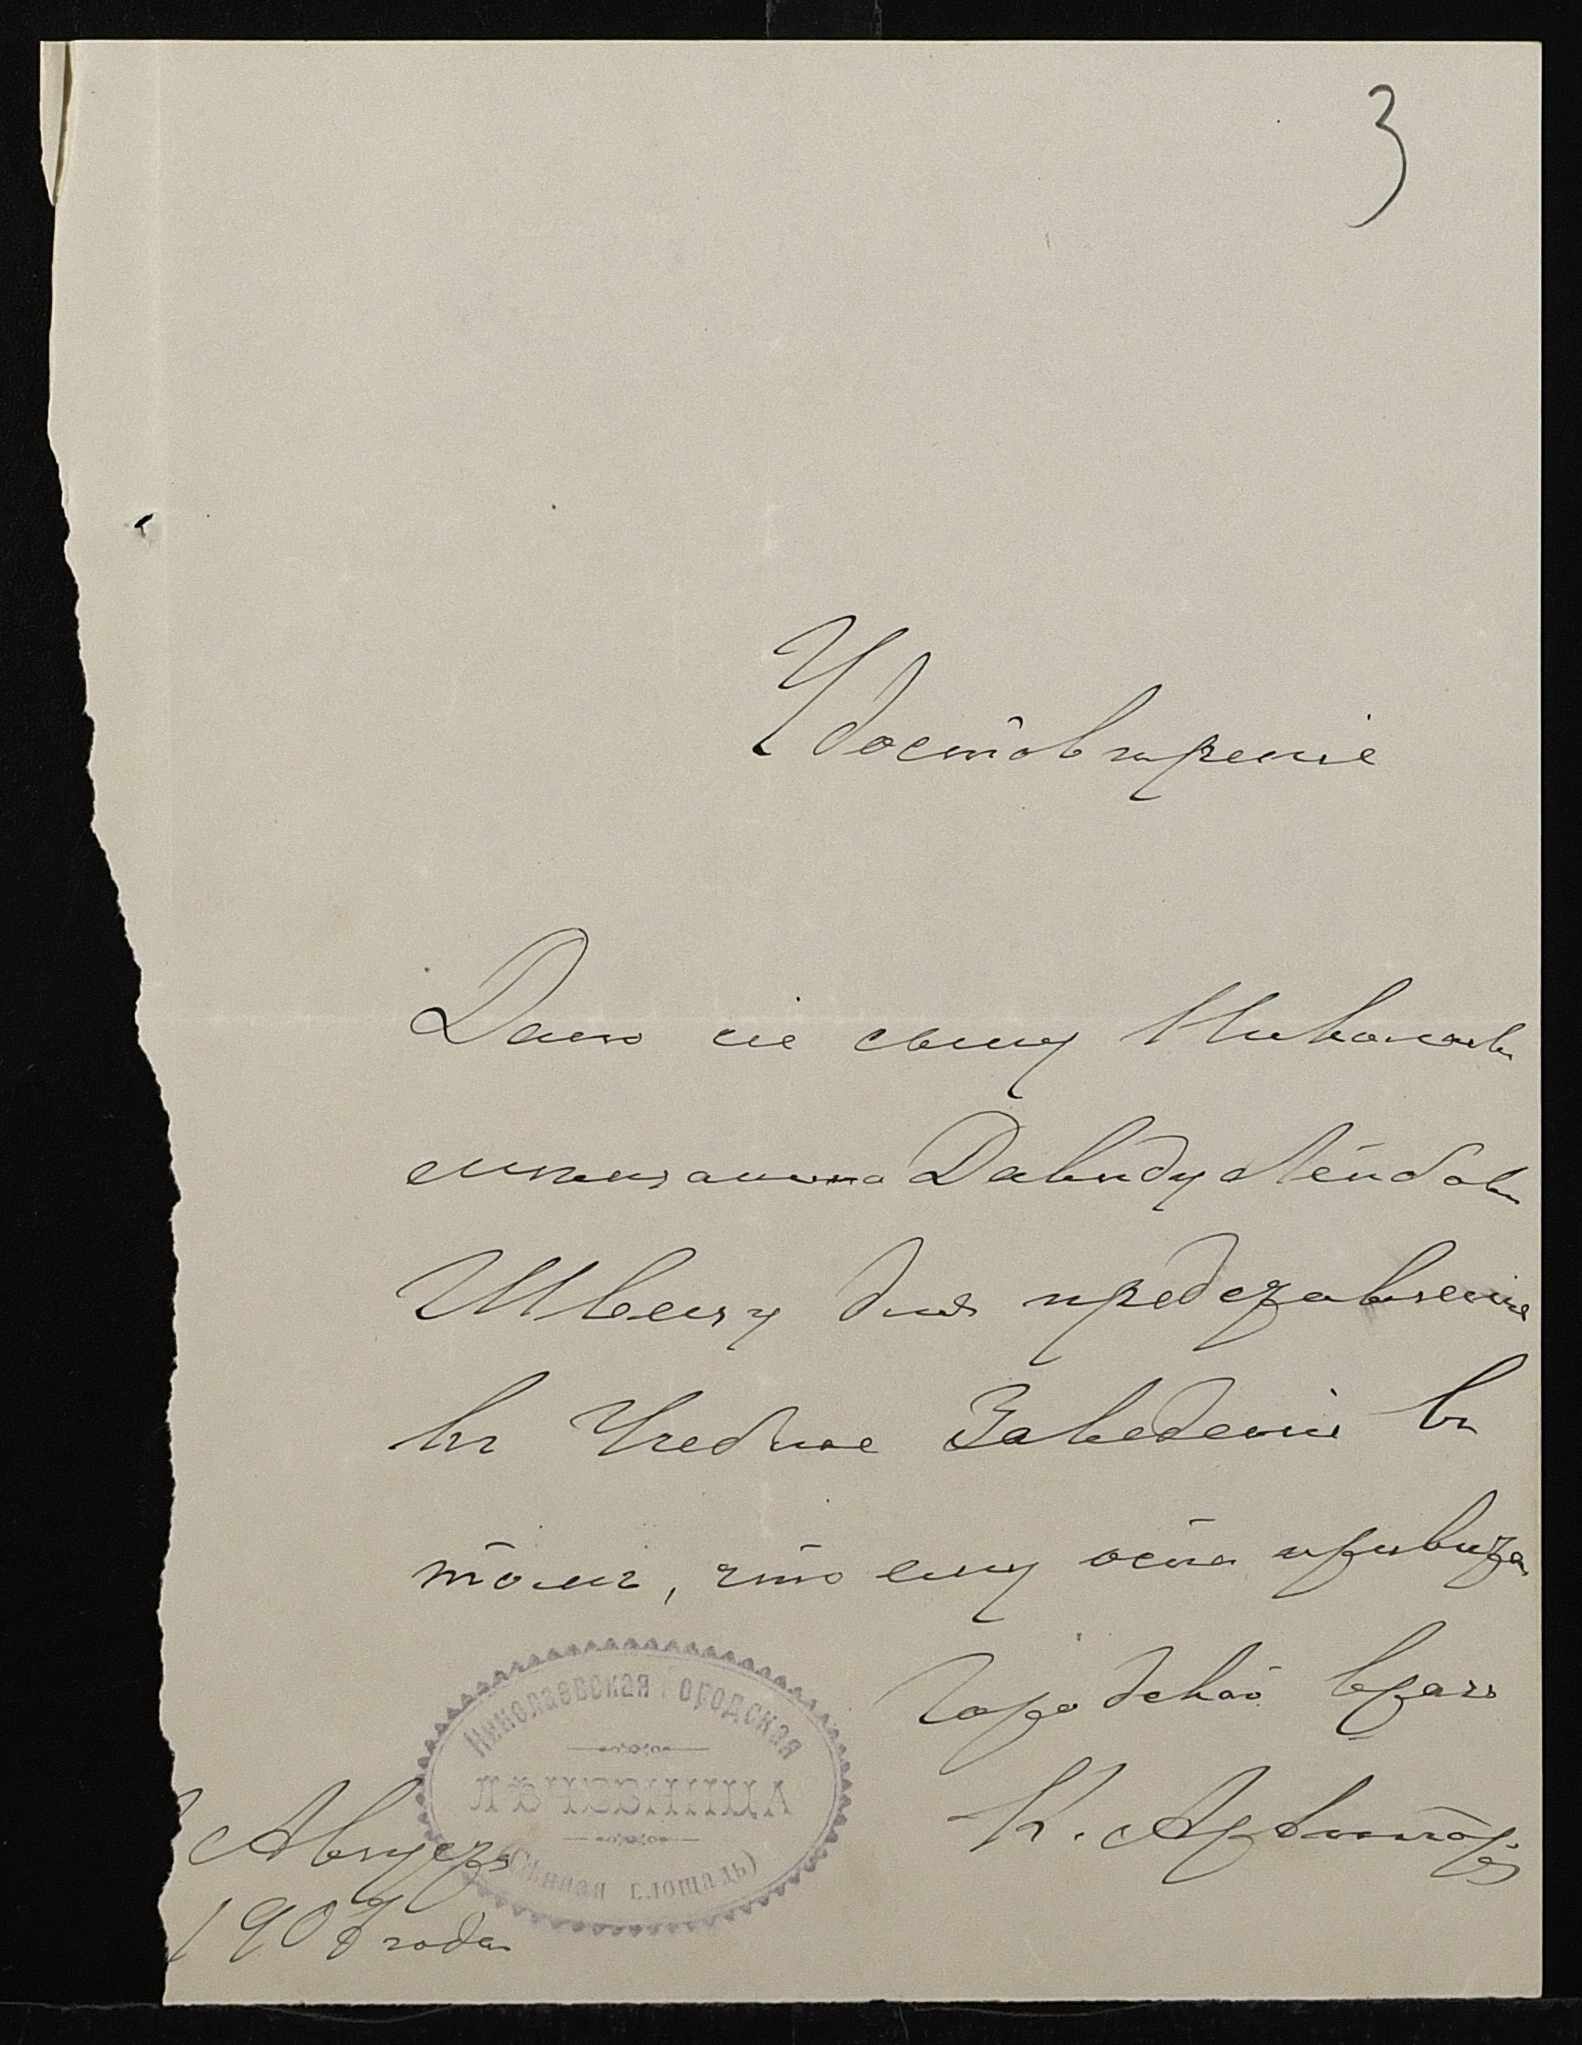 3
Удостовѣреніе
Дано сіе сыну Николаев
мѣщанина Давиду Лейбов
Швецу для представленія
въ Учебное Заведеніе въ
томъ, что ему оспа привита
Городской врачъ
К.
Николаевская Городская
ЛѢЧЕБНИЦА
(Сѣнная площадь)
Августа
190 года